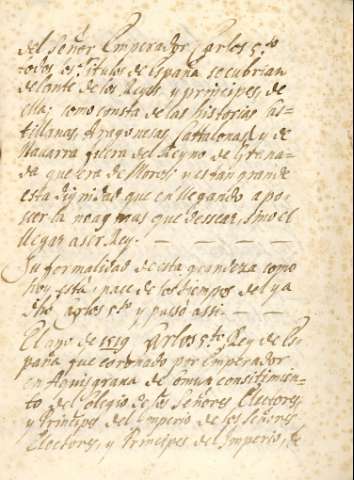 del Señor Emperador Carlos 5.to
todos los Titulos de España se cubrian
delante de los Reyes y principes de
ella; como consta de las historias Cas-
tillanas, Aragonesas, Cattalonas, y de
Navarra y fuera del Reyno de Grena-
da que era de Moros: y es tan grande
esta dignidad que en llegando a po-
seerla no ay mas que dessear, sino el
llegar a ser Rey. — — — — —
Su formalidad de esta grandeza como
hoy esta, nace de los tiempos del ya
dho Carlos 5.to y passo assi. — —
El ayo de 1519 Carlos 5.to Rey de Es-
paña que coronado por Emperador
en Aquisgrana de comun consitimien-
to del Colegio de los Señores Electores
y Principes del Imperio de los Señores
Electores, y Principes del Imperio, de